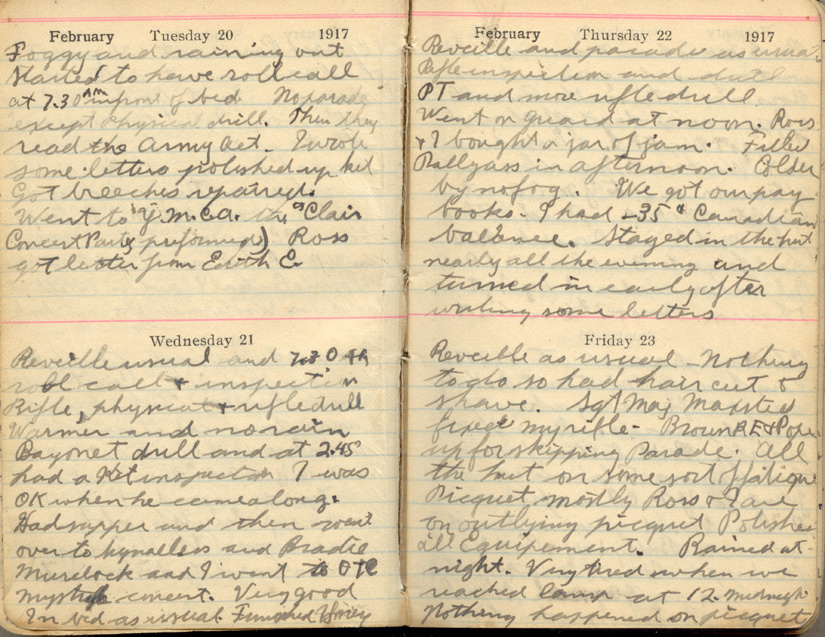 February Tuesday 20 1917
Foggy and raining out
Started to have roll call
at 7.30 AM in front of bed No parade
except physical drill. Then they
read the Army Act. I wrote
some letters polished up kit
Got breeches repaired.
Went to Y.M.C.A. the "Clair
Concert Party preformed) Ross
got letter from Edith E.
Wednesday 21
Reveille usual and 7.30
roll call & inspection
Rifle, physical & rifle drill
Warmer and no rain
Bayonet drill and at 2.45
had a Kit inspection I was
OK when he came along.
Had supper and then went
over to and
Murdock and I went to
concert. Very good
In bed as usual. Finished
February Thursday 22 1917
Reveille and parade as usual
Rifle inspection and drill
PT and more rifle drill
Went on guard at noon. Ross
& I bought a jar of jam. Filled
in afternoon. Colder
by no fog. We got our pay
books. I had -35 ¢ Canadian
balance. Stayed in the hut
nearly all the evening and
turned in early after
writing some letters
Friday 23
Reveille as usual - Nothing
to do so had hair cut &
shave. Sgt Maj
fixed my rifle - Brown RE & Pope
up for skipping Parade. All
the hut on some sort of fatigue
Picquet mostly Ross & I are
on outlying picquet Polished
all Equipement. Rained at
night. Very tired when we
reached camp at 12 midnight
Nothing happened on picquet